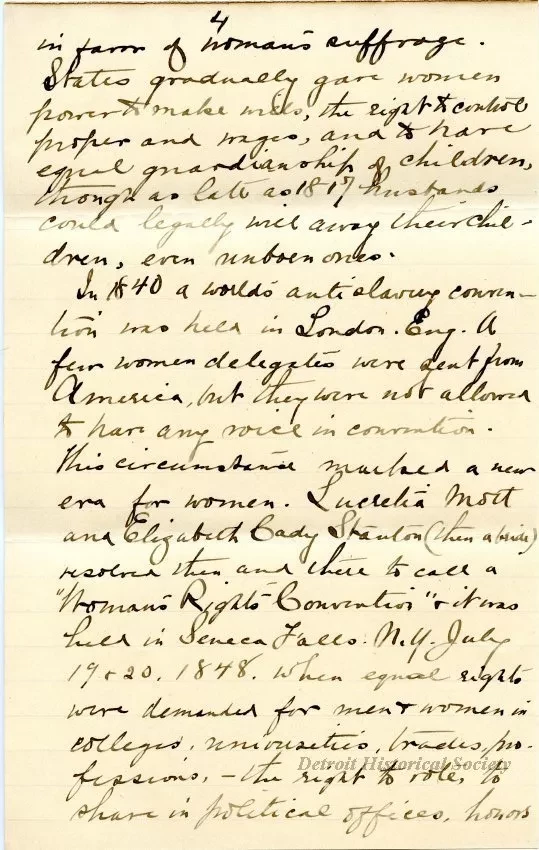 4
in favor of Woman's suffrage.
States gradually gave women
power to make wills, the right to control
proper and wages, and to have
equal guardianship of children,
though as late as 1817 husbands
could legally will away their chil-
dren, even unborn ones.
In 1840 a world's antislavery conven-
tion was held in London. Eng. A
few women delegates were sent from
America, but they were not allowed
to have any voice in convention.
This circumstance marked a new
era for women. Lucretia Mott
and Elizabeth Cady Stanton (then a bride)
resolved then and there to call a
"Woman's Rights Convention" & it was
held in Seneca Falls. N.Y. July
19 & 20. 1848. When equal rights
were demanded for men & women in
colleges, universities, trades, pro-
fessions, - the right to vote, to
share in political offices, honors
Detroit Historical Society